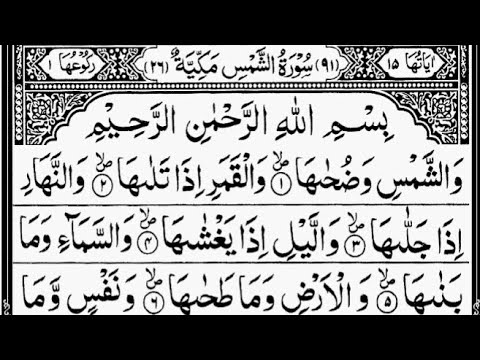 اٰيَاتُهَا ١٥ (٩١) سُوْرَةُ الشَّمْسِ مَكِّيَّةٌ (٢٦) رُكُوْعُهَا ١
بِسْمِ اللّٰهِ الرَّحْمٰنِ الرَّحِيْمِ
وَالشَّمْسِ وَضُحٰىهَا ۙ‏﴿١﴾ وَالْقَمَرِ اِذَا تَلٰىهَا ۙ‏﴿٢﴾ وَالنَّهَارِ
اِذَا جَلّٰىهَا ۙ‏﴿٣﴾ وَالَّيْلِ اِذَا يَغْشٰىهَا ۙ‏﴿٤﴾ وَالسَّمَآءِ وَمَا
بَنٰىهَا ۙ‏﴿٥﴾ وَالْاَرْضِ وَمَا طَحٰىهَا ۙ‏﴿٦﴾ وَنَفْسٍ وَّمَا